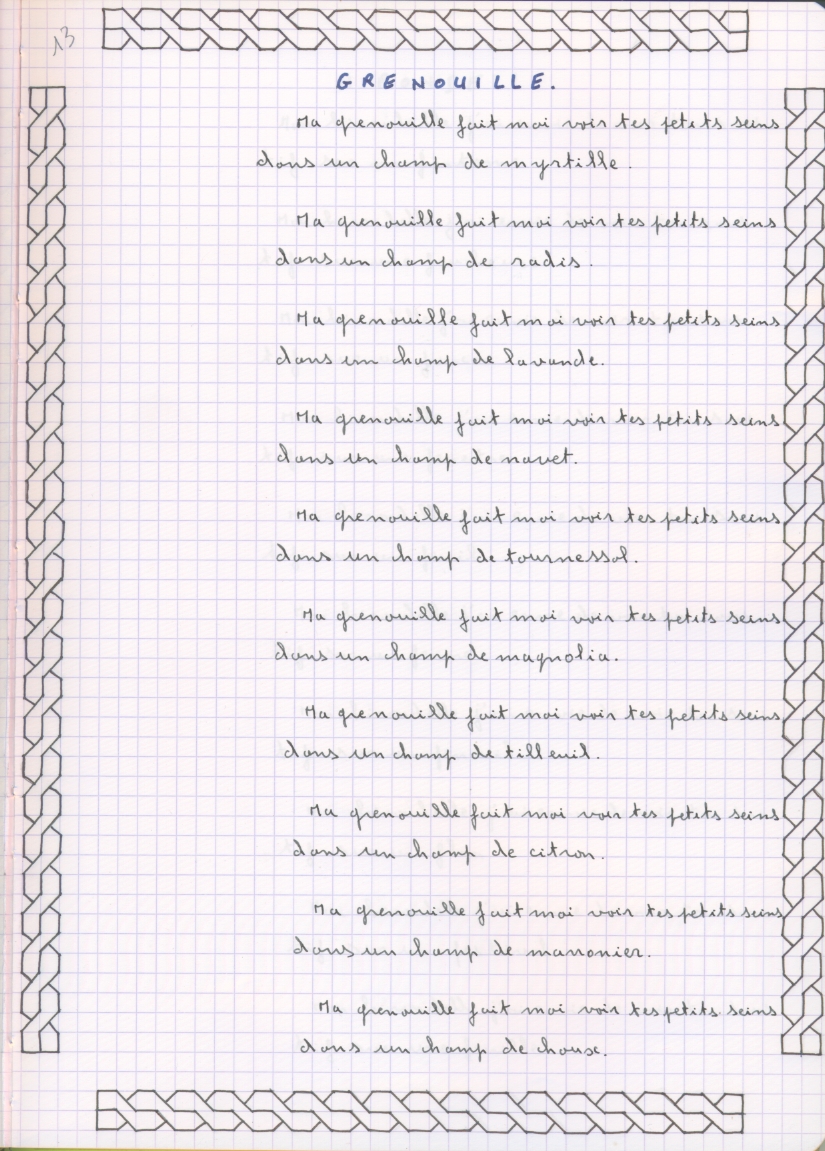 13
GRENOUILLE.
Ma grenouille fait moi voir tes petits seins
dans un champ de myrtille.
Ma grenouille fait moi voir tes petits seins
dans un champ de radis.
Ma grenouille fait moi voir tes petits seins
dans un champ de lavande.
Ma grenouille fait moi voir tes petits seins
dans un champ de navet.
Ma grenouille fait moi voir tes petits seins
dans un champ de tournessol.
Ma grenouille fait moi voir tes petits seins
dans un champ de magnolia.
Ma grenouille fait moi voir tes petits seins
dans un champ de tilleuil.
Ma grenouille fait moi voir tes petits seins
dans un champ de citron.
Ma grenouille fait moi voir tes petits seins
dans un champ de marronier.
Ma grenouille fait moi voir tes petits seins
dans un champ de choux.